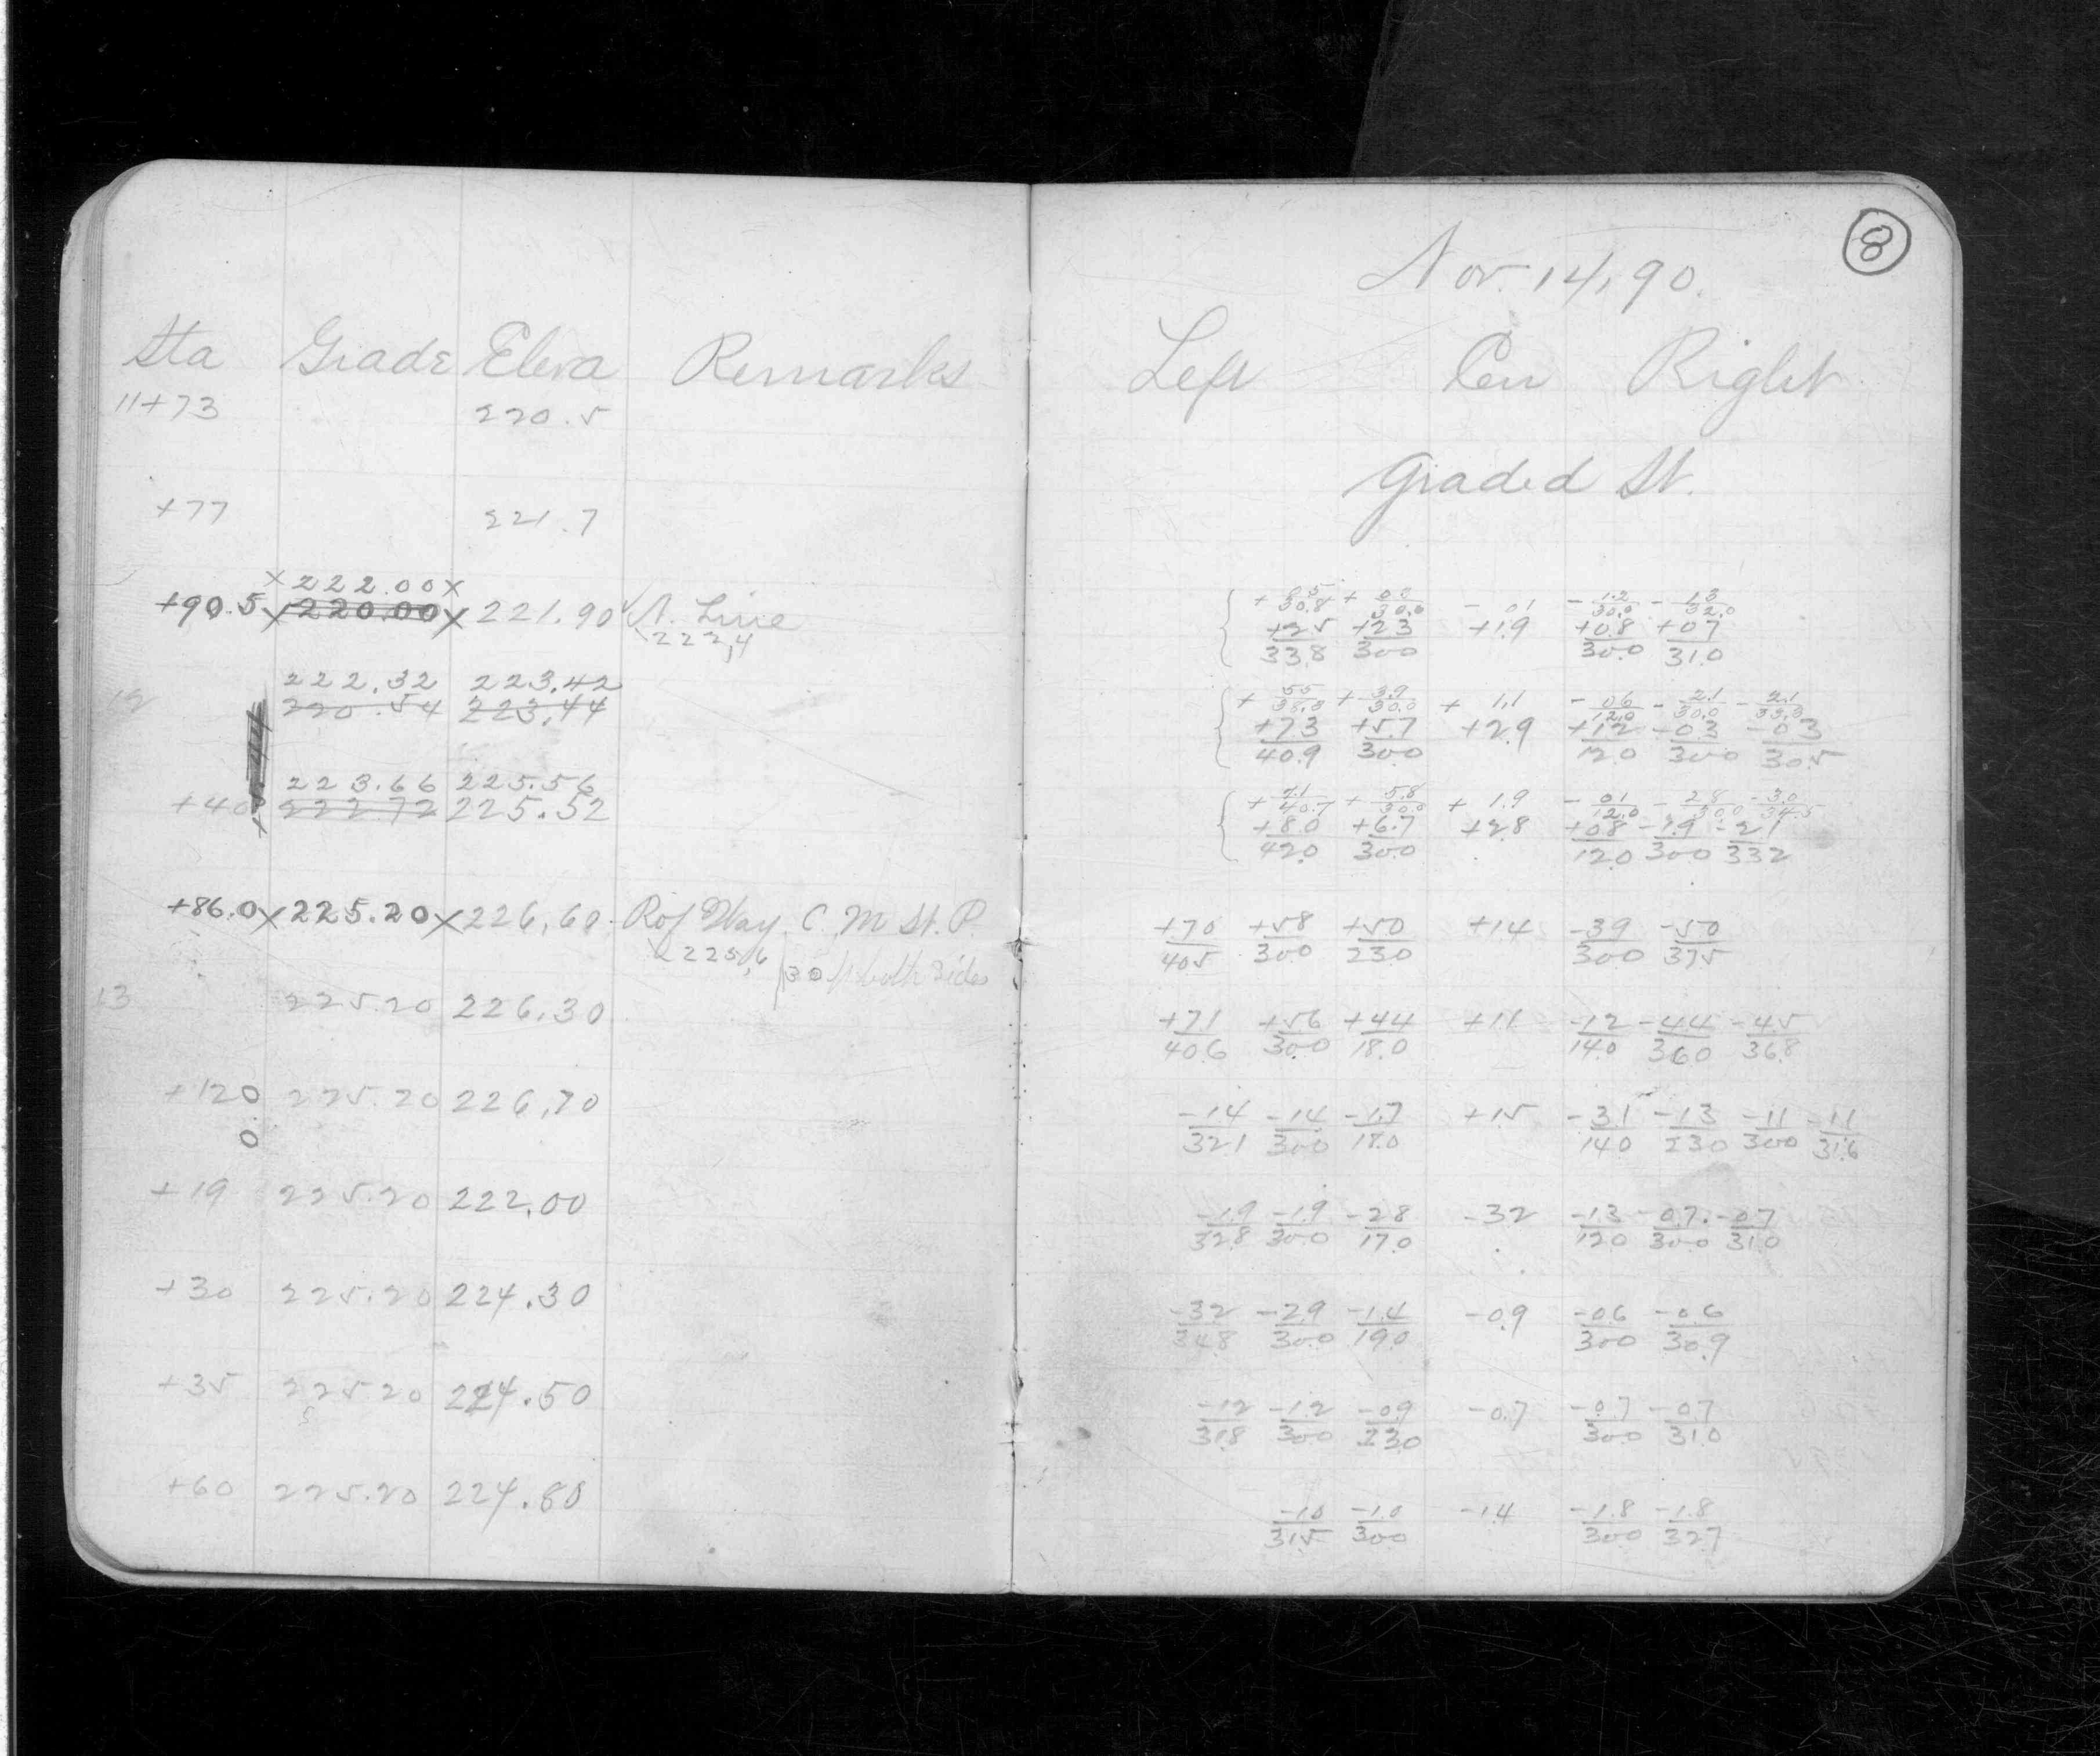 8
Nov. 14, 90.
Sta Grade Eleva Remarks
11+73 220.5
+77 221.7
x 222.00 x
+90.5 x 220.00 x 221.90 N. Line
222.4
222.32 223.42
12 220.54 223.44
223.66 225.56
+40 222.72 225.52
+86.0 x 225.20 x 226.60 R of Way C. M St. P.
225.6 30 ft both sides
13 225.20 226.30
+120 225.20 226.70
0
+19 225.20 222.00
+30 225.20 224.30
+35 225.20 224.50
+60 225.20 224.80
Left Cen Right
Graded St.
+0.5/30.8 +0.8/30.0 -0.1 -1.2/30.0 -1.3/32.0
+2.5/33.8 +2.3/30.0 +1.9 +0.8/30.0 +0.7/31.0
+5.5/38.3 +3.9/30.0 +1.1 -0.6/12.0 -2.1/30.0 -2.1/33.3
+7.3/40.9 +5.7/30.0 +2.9 +1.2/12.0 -0.3/30.0 -0.3/30.5
+7.1/40.7 +5.8/30.0 +1.9 -0.1/12.0 -2.8/30.0 -3.0/34.5
+8.0/42.0 +6.7/30.0 +2.8 +0.8/12.0 -1.9/30.0 -2.1/33.2
+7.0/40.5 +5.8/30.0 +5.0/23.0 +1.4 -3.9/30.0 -5.0/37.5
+7.1/40.6 +5.6/30.0 +4.4/18.0 +1.1 -1.2/14.0 -4.4/36.0 -4.5/36.8
-1.4/32.1 -1.4/30.0 -1.7/18.0 +1.5 -3.1/14.0 -1.3/23.0 -1.1/30.0 -1.1/31.6
-1.9/32.8 -1.9/30.0 -2.8/17.0 -3.2 -1.3/12.0 -0.7/30.0 -0.7/31.0
-3.2/34.8 -2.9/30.0 -1.4/19.0 -0.9 -0.6/30.0 -0.6/30.9
-1.2/31.8 -1.2/30.0 -0.9/23.0 -0.7 -0.7/30.0 -0.7/31.0
-1.0/31.5 -1.0/30.0 -1.4 -1.8/30.0 -1.8/32.7